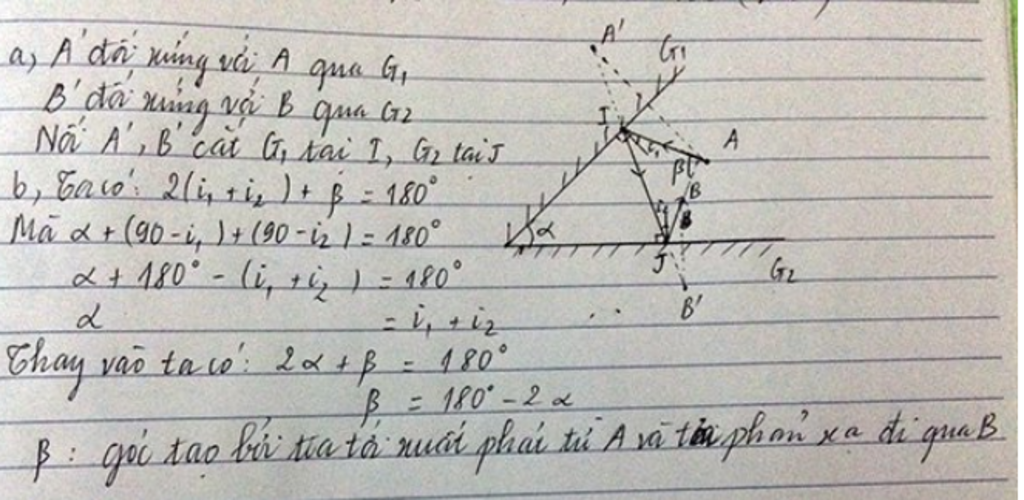 a, A' đối xứng với A qua G₁
B' đối xứng với B qua G2
Nối A', B' cắt G₁ tại I, G₂ tại J
b, Ta có: 2(i₁ + i₂) + β = 180°
Mà α + (90 - i₁) + (90 - i₂) = 180°
α + 180° - (i₁ + i₂) = 180°
α = i₁ + i₂
Thay vào ta có: 2α + β = 180°
β = 180° - 2α
β : góc tạo bởi tia tới xuất phát từ A và tia phản xạ đi qua B
A'
G₁
I
i₁
A
β
B
α
J
G₂
B'